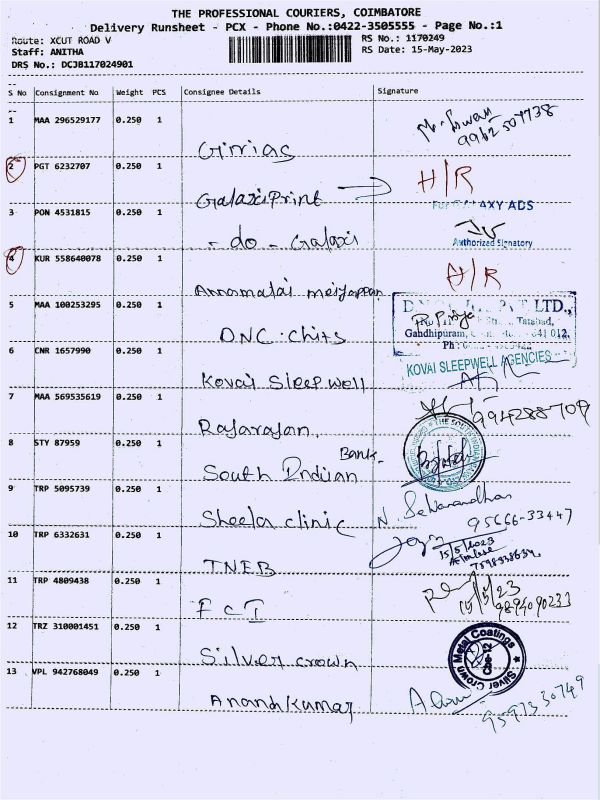 THE PROFESSIONAL COURIERS, COIMBATORE
Delivery Runsheet - PCX - Phone No.:0422-3505555 - Page No.:1
Route: XCUT ROAD V
RS No.: 1170249
Staff: ANITHA
RS Date: 15-May-2023
DRS No.: DCJB117024901
S No Consignment No Weight PCS Consignee Details Signature
1 MAA 296529177 0.250 1
Girrias
9962507738
2 PGT 6232707 0.250 1
Galaxi Print → H/R
3 PON 4531815 0.250 1
AXY ADS
- do - Galaxi
Authorized Signatory
4 KUR 558640078 0.250 1
Annamalai meiyappan
H/R
5 MAA 100253295 0.250 1
PVT LTD.,
Tatabad,
DNC. Chits
Gandhipuram, 641 012.
Ph :
6 CNR 1657990 0.250 1
KOVAI SLEEPWELL AGENCIES
Kovai Sleepwell
7 MAA 569535619 0.250 1
994288709
Rajarajan.
8 STY 87959 0.250 1
South Indian Bank.
9 TRP 5095739 0.250 1
Sheela clinic
95666-33447
10 TRP 6332631 0.250 1
15/5/2023
TNEB
11 TRP 4809438 0.250 1
15/5/23
9894090233
F C I
12 TRZ 310001451 0.250 1
Silver Crown Metal Coatings
Cbe-12
Silver crown
13 VPL 942768049 0.250 1
Anandkumar
9597330749